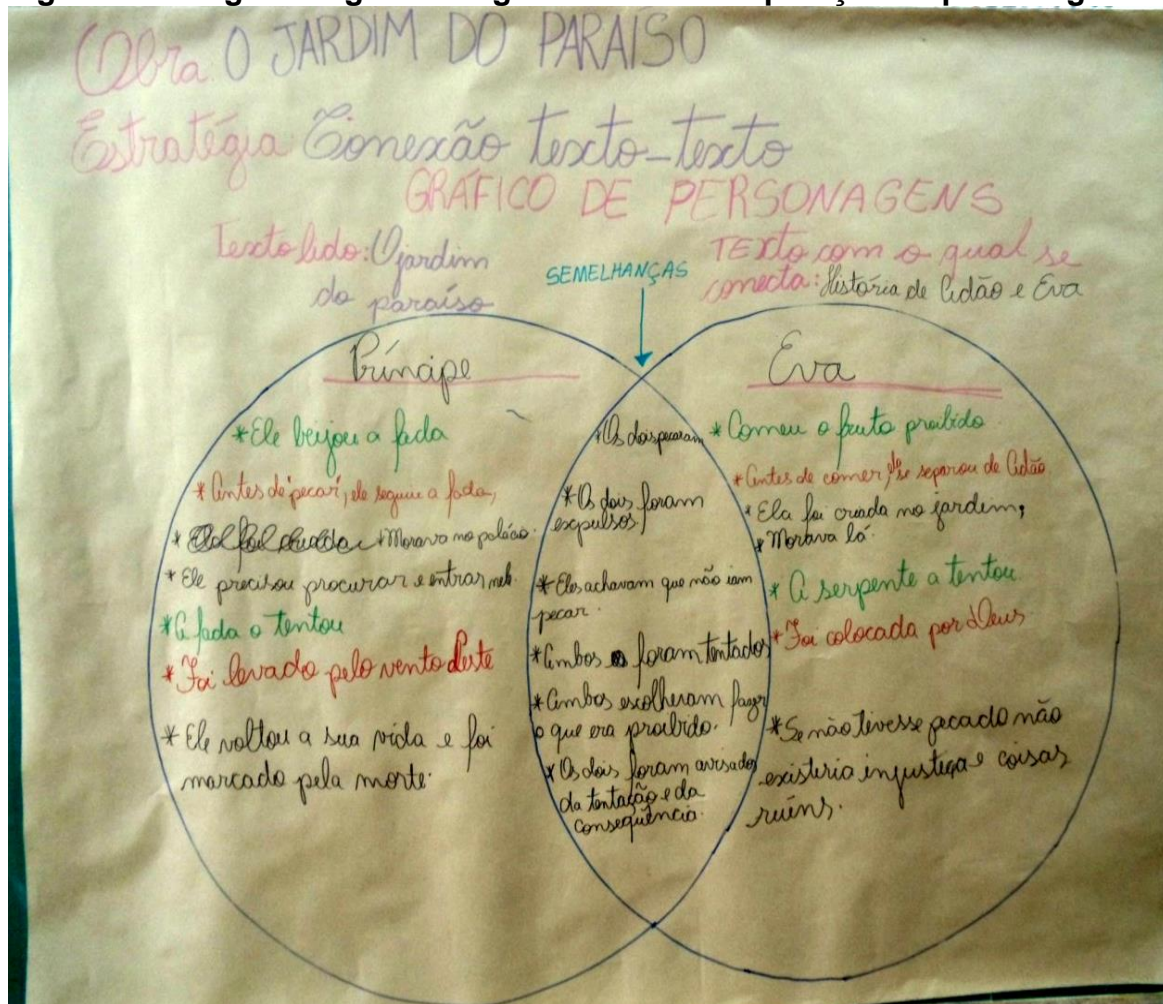 Obra O JARDIM DO PARAÍSO
Estratégia Conexão texto-texto
GRÁFICO DE PERSONAGENS
Texto lido: O jardim
do paraíso
SEMELHANÇAS
TExto com o qual se
conecta: História de Adão e Eva
Príncipe
*Ele beijou a fada
*Antes de pecar, ele seguiu a fada,
* Morava no palácio.
*Ele precisou procurar e entrar nele.
*A fada o tentou
*Foi levado pelo vento Leste
*Ele voltou a sua vida e foi
marcado pela morte.
*Os dois pecaram
*Os dois foram
expulsos
*Eles achavam que não iam
pecar.
*Ambos foram tentados
*Ambos escolheram fazer
o que era proibido.
*Os dois foram avisados
da tentação e da
consequência.
Eva
*Comeu o fruto proibido
*Antes de comer, se separou de Adão
*Ela foi criada no jardim,
*Morava lá.
*A serpente a tentou.
*Foi colocada por Deus
*Se não tivesse pecado não
existiria injustiça e coisas
ruéns.